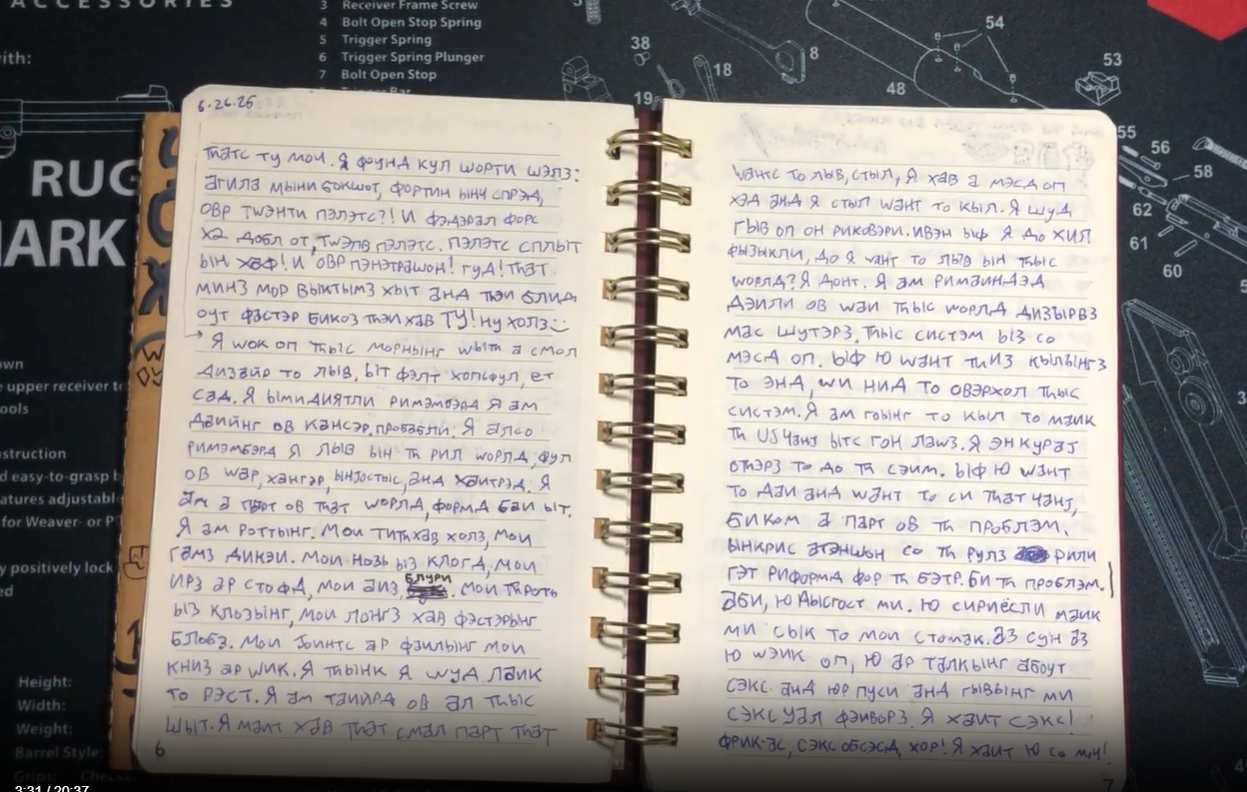 ACCESSORIES
3 Receiver Frame Screw
4 Bolt Open Stop Spring
5 Trigger Spring
6 Trigger Spring Plunger
7 Bolt Open Stop
with:
RUG
MARK
38
18
19
8
54
48
53
55
56
58
62
61
60
own
upper receiver to
ools
struction
d easy-to-grasp
atures adjustabl
for Weaver- or P
y positively lock
ed
Height:
Width:
Weight:
Barrel Style:
Grips:
6.26.25
Thатс ту мои. Я фоунд кул шорти шэлз:
агила мыни бокшот, фортин ынч спрэд,
овр тwэнти пэлэтс?! И фэдэрал форс
х2 добл от, тwэлв пэлэтс. Пэлэтс сплыт
ын хаф! И овр пэнэтрашон! гуд! Thат
минз мор выктымз хыт анд тhэи блид
оут фастэр бикоз тhэи хав ТУ! ну холз
→ Я wок оп тhыс морнынг wыth а смол
дизаир то лыв. Ыт фэлт хопсфул, ет
сад. Я ымидиятли римэмбэрд я ам
даийнг ов кансэр, пробабли. Я алсо
римэмбэрд я лыв ын тh рил wорлд, фул
ов wар, хангэр, ынjостыс, анд хаитрэд. Я
ам а парт ов тhат wорлд, формд баи ыт.
Я ам роттынг. Мои титh хав холз, мои
гамз дикэи. Мои нозь ыз клогд, мои
ирз ар стофд, мои аиз блури. Мои тhроть
ыз клозынг, мои лонгз хав фэстэрынг
блобз. Мои jоинтс ар фаилынг мои
книз ар wик. Я тhынк я wуд лаик
то рэст. Я ам таийрд ов ал тhыс
шыт. Я маит хав тhат смал парт тhат
6
wантс то лыв, стыл, я хав а мэсд оп
хэд анд я стыл wант то кыл. Я шуд
гыв оп он риковэри. Ивэн ыф я до хил
фызыкли, до я wант то лыв ын тhыс
wорлд? Я донт. Я ам римаиндэд
дэили ов wаи тhыс wорлд дизырвз
мас шутэрз. Тhыс систэм ыз со
мэсд оп. Ыф ю wант тhиз кылынгз
то энд, wи нид то овэрхол тhыс
систэм. Я ам гоынг то кыл то маик
тh US чанj ытс гон лаwз. Я энкураj
отhэрз то до тh сэим. Ыф ю wант
то даи анд wант то си тhат чанj,
биком а парт ов тh проблэм.
Ынкрис атэншын со тh рулз рили
гэт риформд фор тh бэтр. Би тh проблэм.
Аби, ю дысгост ми. Ю сириёсли маик
ми сык то мои стомак. Аз сун аз
ю wэик оп, ю ар талкынг абоут
сэкс анд юр пуси анд гывынг ми
сэксуал фэиворз. Я хаит сэкс!
фрик-ас, сэкс обсэсд хор! Я хаит ю со моч!
7
3:31 / 20:37